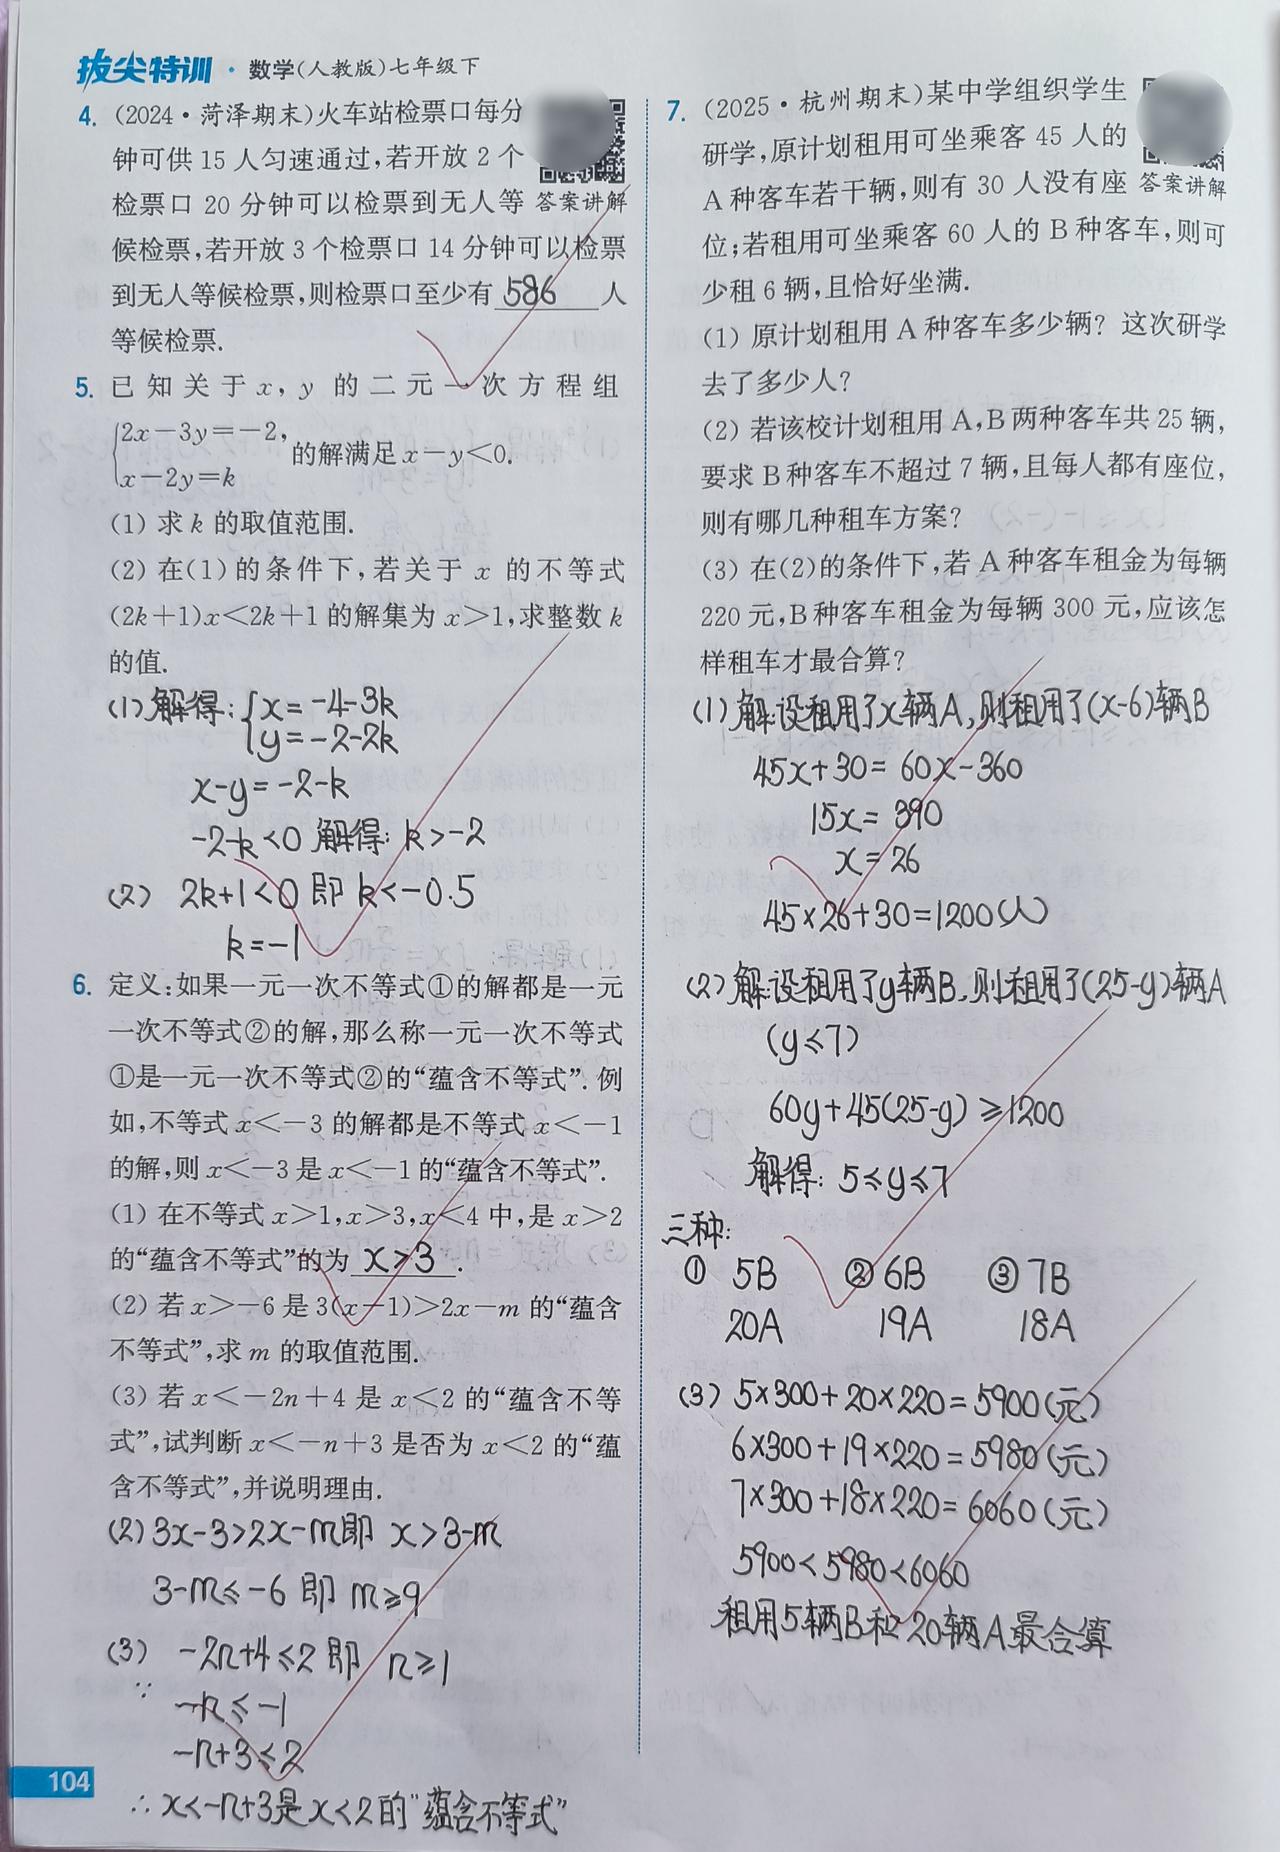 拔尖特训·数学(人教版)七年级下
4. (2024·菏泽期末)火车站检票口每分
钟可供 15 人匀速通过,若开放 2 个
检票口 20 分钟可以检票到无人等
答案讲解
候检票,若开放 3 个检票口 14 分钟可以检票
到无人等候检票,则检票口至少有 586 人
等候检票.
5. 已知关于 x, y 的二元一次方程组
{2x-3y=-2,
x-2y=k
的解满足 x-y<0.
(1) 求 k 的取值范围.
(2) 在(1)的条件下,若关于 x 的不等式
(2k+1)x<2k+1 的解集为 x>1,求整数 k
的值.
(1)解得:{x=-4-3k
y=-2-2k
x-y=-2-k
-2-k<0 解得: k>-2
(2) 2k+1<0 即 k<-0.5
k=-1
6. 定义:如果一元一次不等式①的解都是一元
一次不等式②的解,那么称一元一次不等式
①是一元一次不等式②的“蕴含不等式”. 例
如,不等式 x<-3 的解都是不等式 x<-1
的解,则 x<-3 是 x<-1 的“蕴含不等式”.
(1) 在不等式 x>1,x>3,x<4 中,是 x>2
的“蕴含不等式”的为 x>3 .
(2) 若 x>-6 是 3(x-1)>2x-m 的“蕴含
不等式”,求 m 的取值范围.
(3) 若 x<-2n+4 是 x<2 的“蕴含不等
式”,试判断 x<-n+3 是否为 x<2 的“蕴
含不等式”,并说明理由.
(2) 3x-3>2x-m即 x>3-m
3-m≤-6 即 m≥9
(3) -2n+4≤2 即 n≥1
∵ -n≤-1
-n+3≤2
∴ x<-n+3是x<2的“蕴含不等式”
104
7. (2025·杭州期末)某中学组织学生
研学,原计划租用可坐乘客 45 人的
A 种客车若干辆,则有 30 人没有座
答案讲解
位;若租用可坐乘客 60 人的 B 种客车,则可
少租 6 辆,且恰好坐满.
(1) 原计划租用 A 种客车多少辆? 这次研学
去了多少人?
(2) 若该校计划租用 A,B 两种客车共 25 辆,
要求 B 种客车不超过 7 辆,且每人都有座位,
则有哪几种租车方案?
(3) 在(2)的条件下,若 A 种客车租金为每辆
220 元,B 种客车租金为每辆 300 元,应该怎
样租车才最合算?
(1) 解:设租用了x辆A,则租用了(x-6)辆B
45x+30=60x-360
15x=390
x=26
45×26+30=1200(人)
(2) 解:设租用了y辆B,则租用了(25-y)辆A
(y≤7)
60y+45(25-y)≥1200
解得: 5≤y≤7
三种:
① 5B ② 6B ③ 7B
20A 19A 18A
(3) 5×300+20×220=5900(元)
6×300+19×220=5980(元)
7×300+18×220=6060(元)
5900<5980<6060
租用5辆B和20辆A最合算